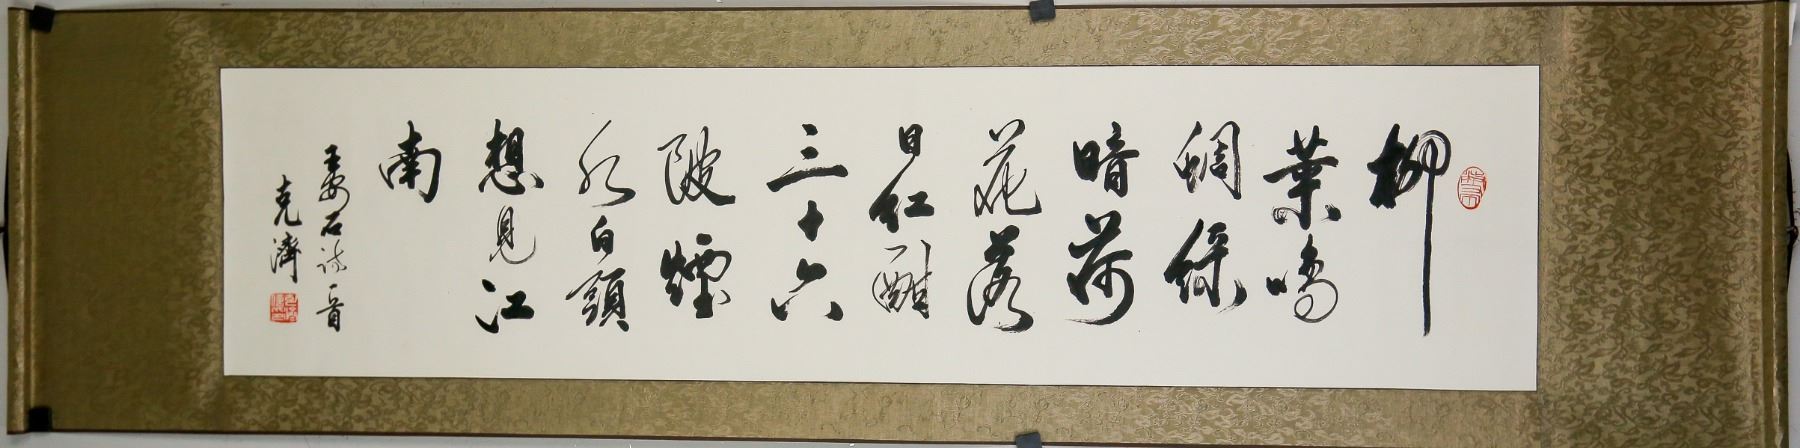 柳
葉鳴
蜩绿
暗荷
花落
日红酣
三十六
陂煙
水白頭
想見江
南
王安石诗一首
克濟